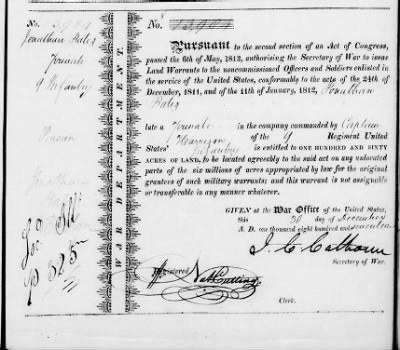 No.
Jonathan
Private
9 Infantry
WAR DEPARTMENT.
No
Pursuant to the second section of an Act of Congress,
passed the 6th of May, 1812, authorising the Secretary of War to issue
Land Warrants to the noncommissioned Officers and Soldiers enlisted in
the service of the United States, conformably to the acts of the 24th of
December, 1811, and of the 11th of January, 1812, Jonathan
late a Private in the company commanded by Captain
Harrison of the 9 Regiment United
States' Infantry is entitled to ONE HUNDRED AND SIXTY
ACRES OF LAND, to be located agreeably to the said act on any unlocated
parts of the six millions of acres appropriated by law for the original
grantees of such military warrants; and this warrant is not assignable
or transferable in any manner whatever.
GIVEN at the War Office of the United States,
this 20 day of December
A. D. one thousand eight hundred and seventeen
J. C. Calhoun
Secretary of War.
Registered Nath Cutting
Clerk.
p 325